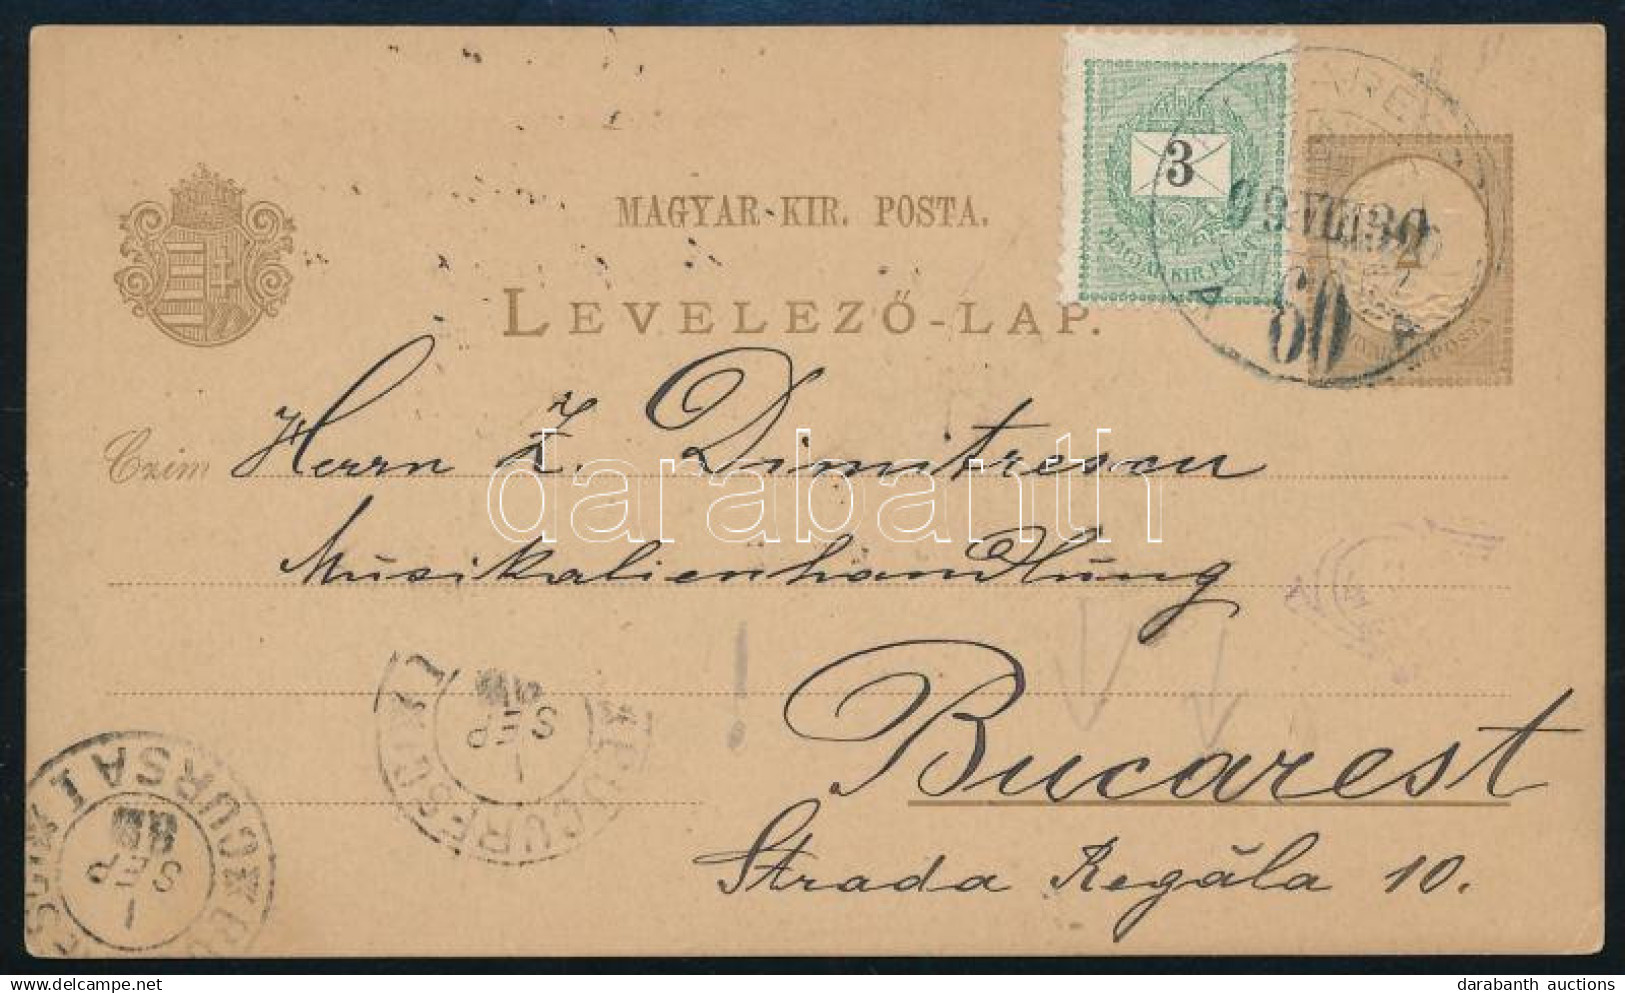 MAGYAR·KIR. POSTA.
LEVELEZŐ-LAP.
3
MAGYAR KIR. POSTA
2
60
Czim Herrn Z. Dimitrescu
Musikalienhandlung
Bucarest
Strada Regála 10.
1
SEP
BUCURESCI
1
SEP
CURSA I
darabanth
darabanth auctions